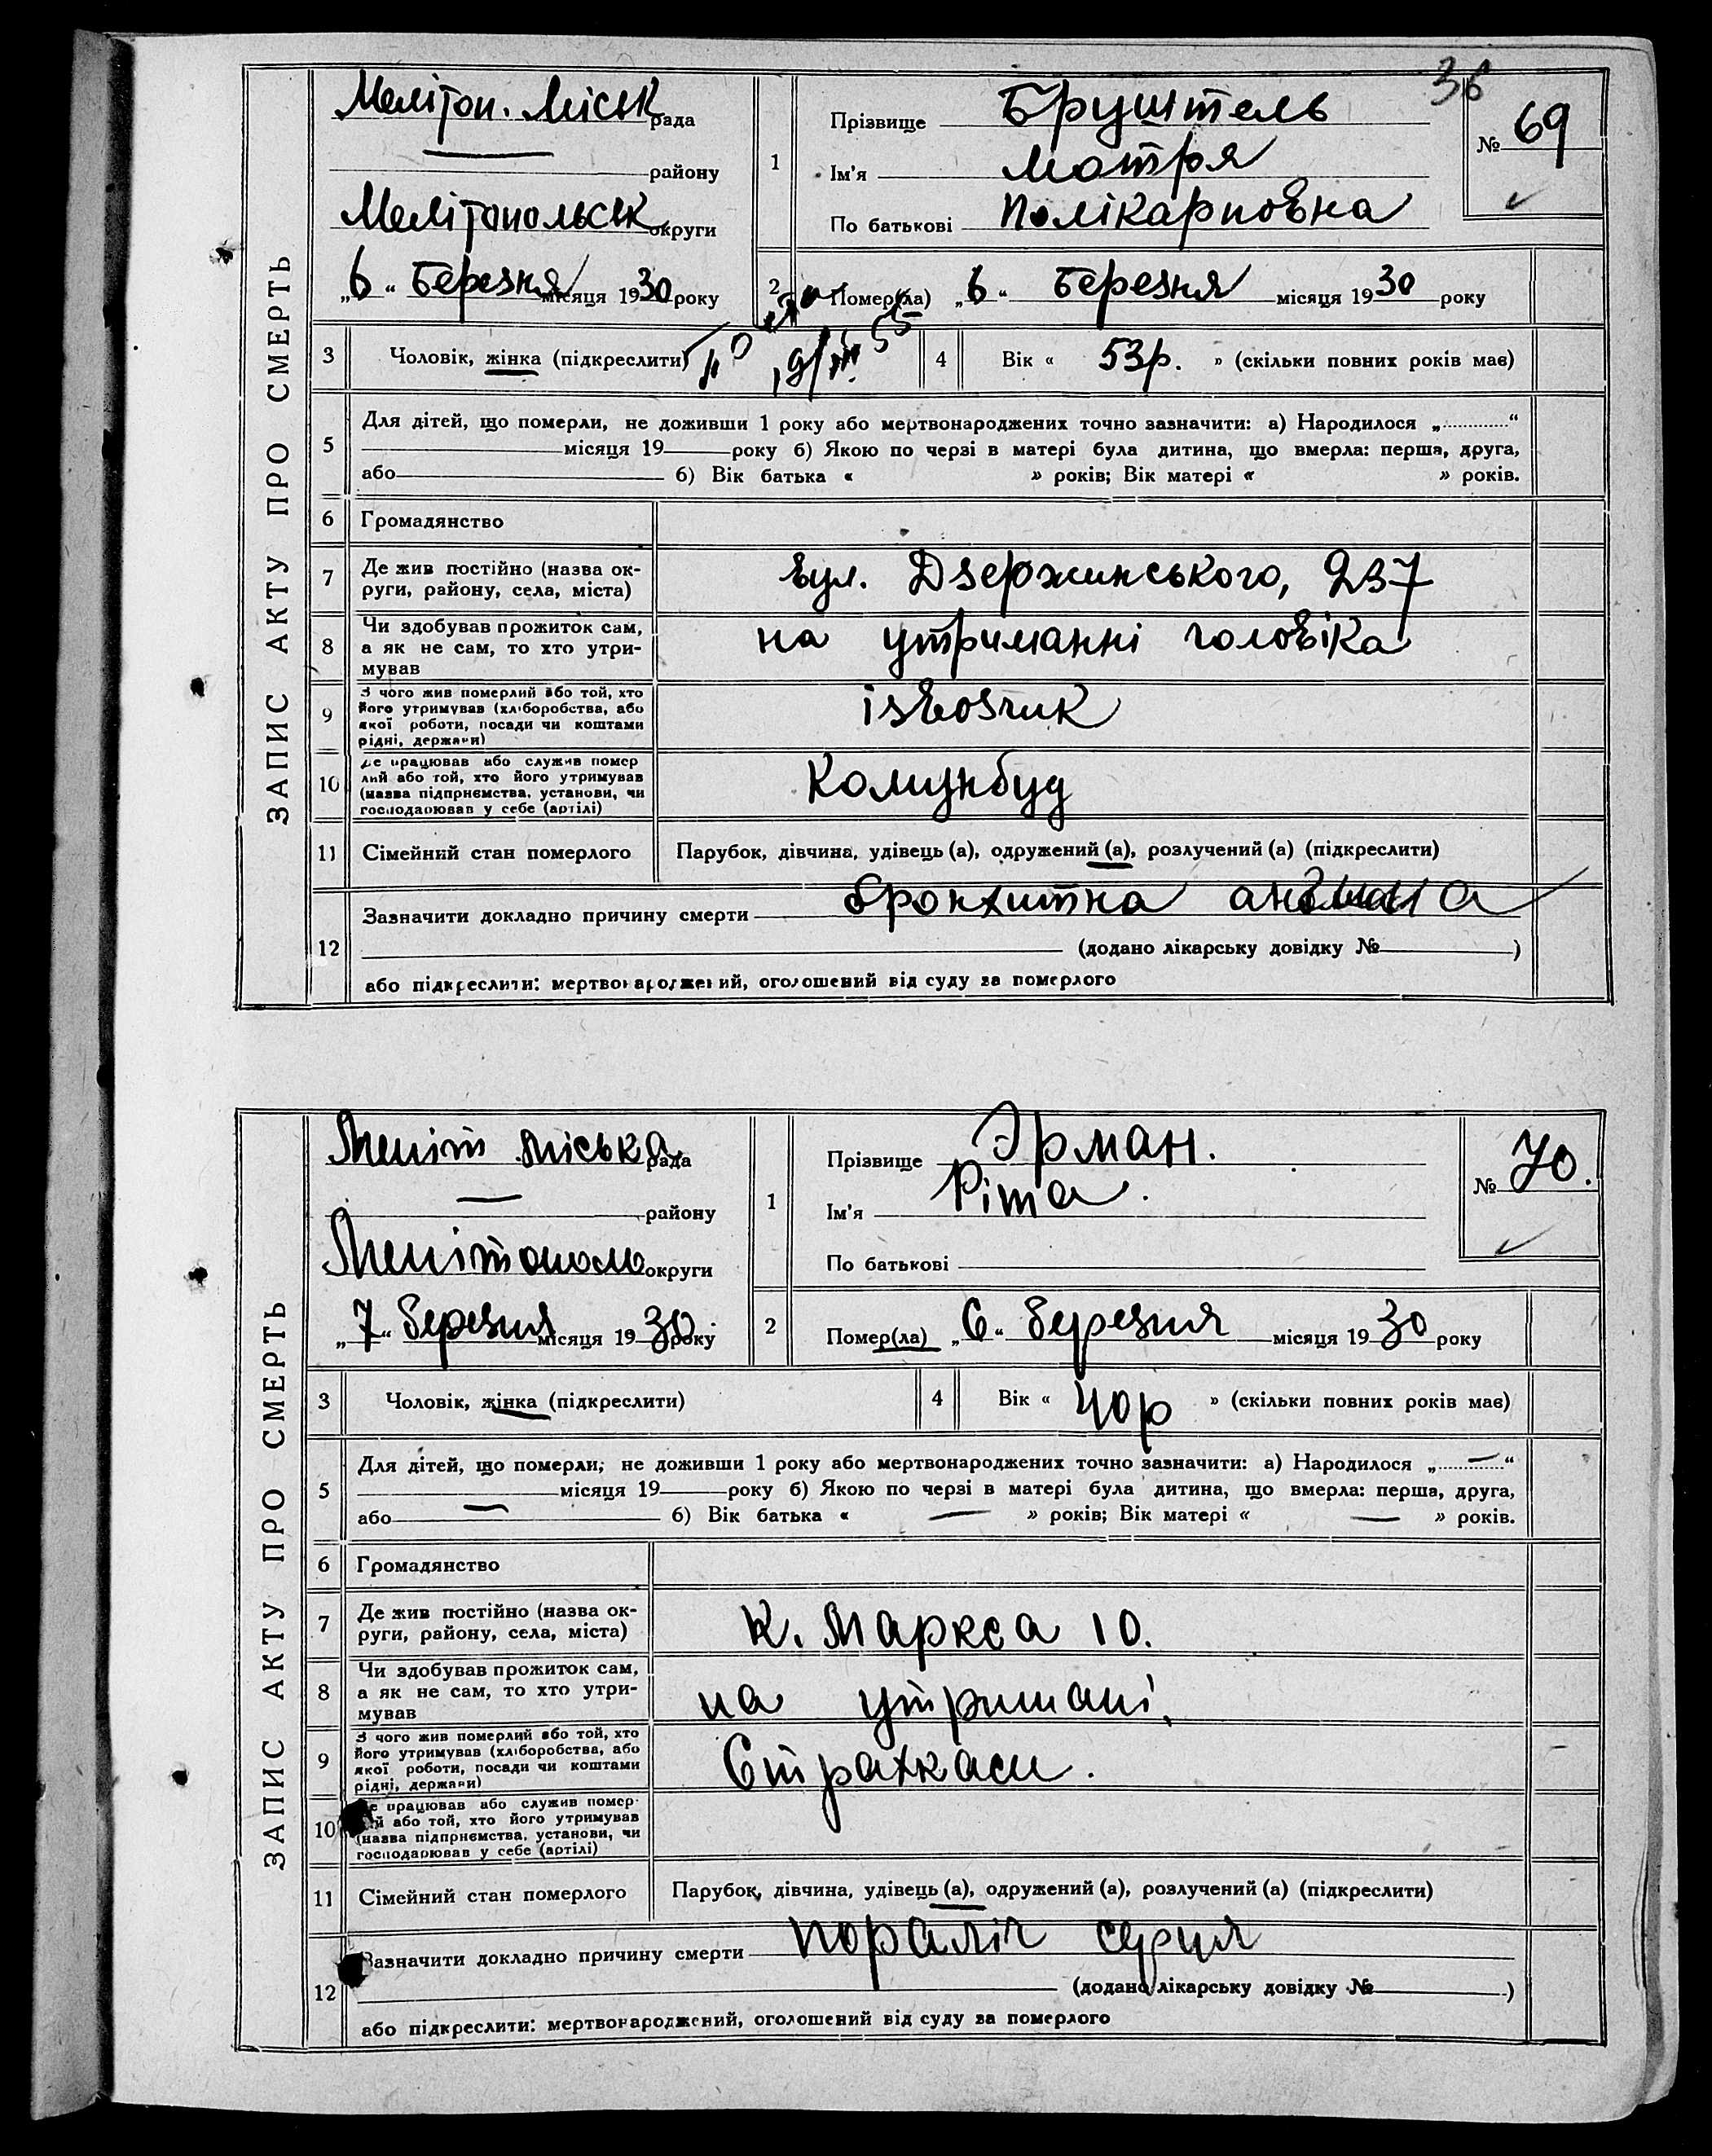 36
ЗАПИС АКТУ ПРО СМЕРТЬ
Мелітоп. Міськ рада
району
Мелітопольськ округи
„6“ Березня місяця 1930 року
1
Прізвище Бруштель
Ім'я Мотря
По батькові Полікарповна
№ 69
2 Помер(ла) „6“ Березня місяця 1930 року
3 Чоловік, жінка (підкреслити)
4 Вік « 53р. » (скільки повних років має)
5 Для дітей, що померли, не доживши 1 року або мертвонароджених точно зазначити: а) Народилося „ “
місяця 19 року б) Якою по черзі в матері була дитина, що вмерла: перша, друга,
або б) Вік батька « » років; Вік матері « » років.
6 Громадянство
7 Де жив постійно (назва ок-
руги, району, села, міста)
вул. Дзержинського, 237
8 Чи здобував прожиток сам,
а як не сам, то хто утри-
мував
на утриманні чоловіка
9 З чого жив померлий або той, хто
його утримував (хліборобства, або
якої роботи, посади чи коштами
рідні, держави)
ізвозчик
10 Де працював або служив помер
лий або той, хто його утримував
(назва підприємства, установи, чи
господарював у себе (артілі)
Комунбуд
11 Сімейний стан померлого Парубок, дівчина, удівець (а), одружений (а), розлучений (а) (підкреслити)
12 Зазначити докладно причину смерти бронхитна
(додано лікарську довідку № )
або підкреслити: мертвонароджений, оголошений від суду за померлого
ЗАПИС АКТУ ПРО СМЕРТЬ
Меліт Міська рада
району
Мелітополь округи
„7“ березня місяця 1930 року
1
Прізвище Эрман.
Ім'я Ріта.
По батькові
№ 70.
2 Помер(ла) „6“ березня місяця 1930 року
3 Чоловік, жінка (підкреслити)
4 Вік « 40р » (скільки повних років має)
5 Для дітей, що померли; не доживши 1 року або мертвонароджених точно зазначити: а) Народилося „ — “
місяця 19 року б) Якою по черзі в матері була дитина, що вмерла: перша, друга,
або — б) Вік батька « — » років; Вік матері « — » років.
6 Громадянство
7 Де жив постійно (назва ок-
руги, району, села, міста)
К. Маркса 10.
8 Чи здобував прожиток сам,
а як не сам, то хто утри-
мував
на утримані,
9 З чого жив померлий або той, хто
його утримував (хліборобства, або
якої роботи, посади чи коштами
рідні, держави)
Страхкаси.
10 Де працював або служив помер-
лий або той, хто його утримував
(назва підприємства, установи, чи
господарював у себе (артілі)
11 Сімейний стан померлого Парубок, дівчина, удівець (а), одружений (а), розлучений (а) (підкреслити)
12 Зазначити докладно причину смерти пораліч серця
(додано лікарську довідку № )
або підкреслити: мертвонароджений, оголошений від суду за померлого